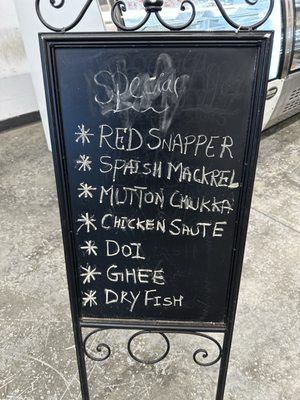 Special
* RED SNAPPER
* SPAISH MACKREL
* MUTTON CHUKKA
* CHICKEN SHUTE
* DOI
* GHEE
* DRY FISH